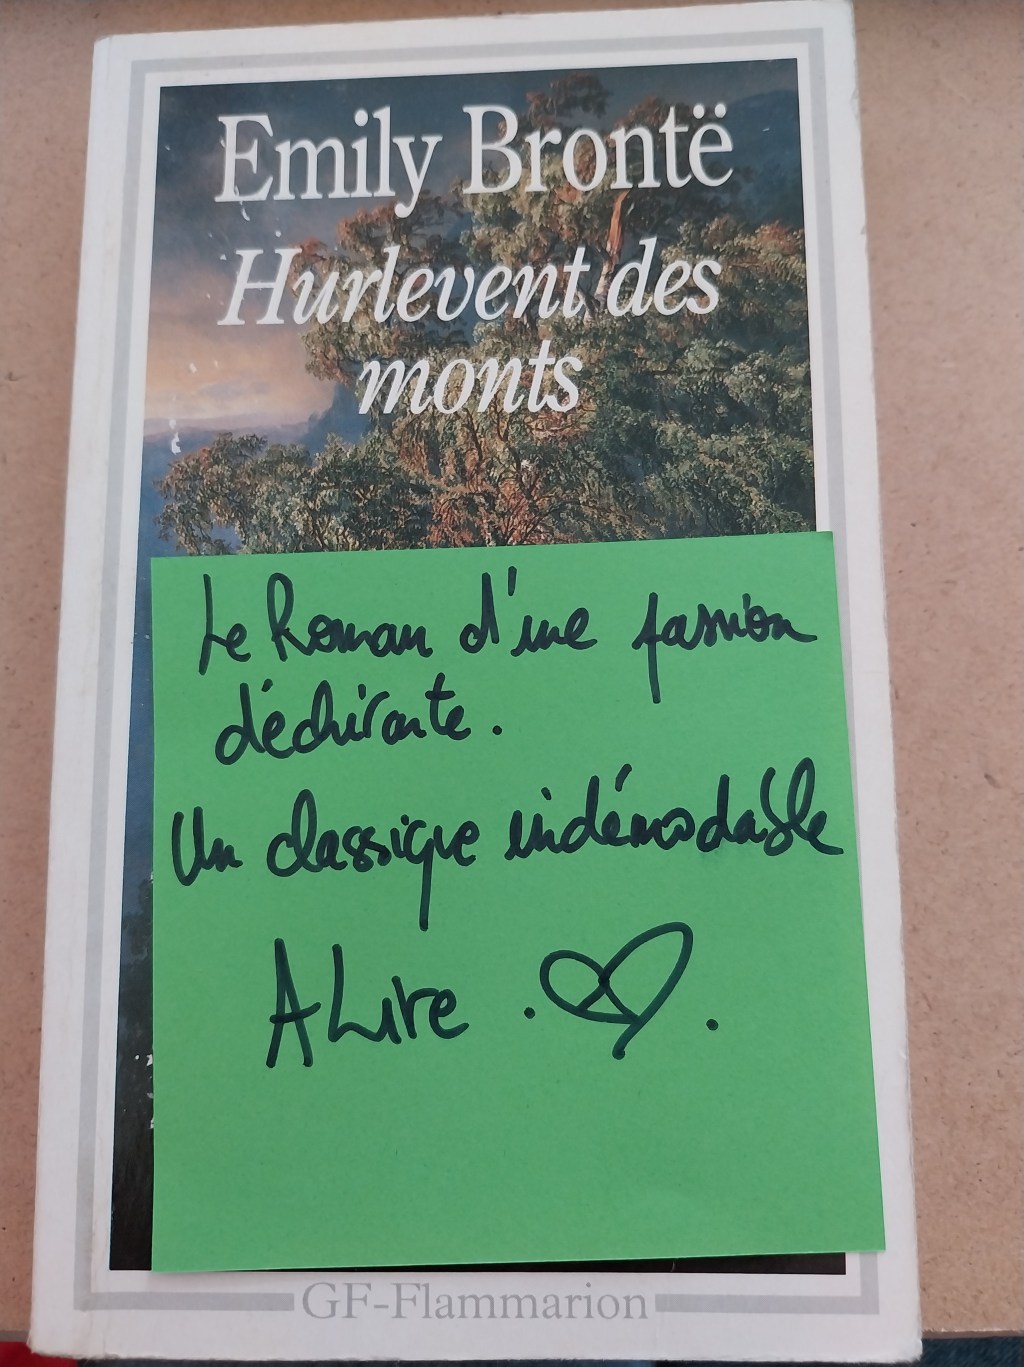 Emily Brontë
Hurlevent des
monts
Le Roman d'une passion
déchirante.
Un classique indémodable
A Lire . ♡ .
GF-Flammarion